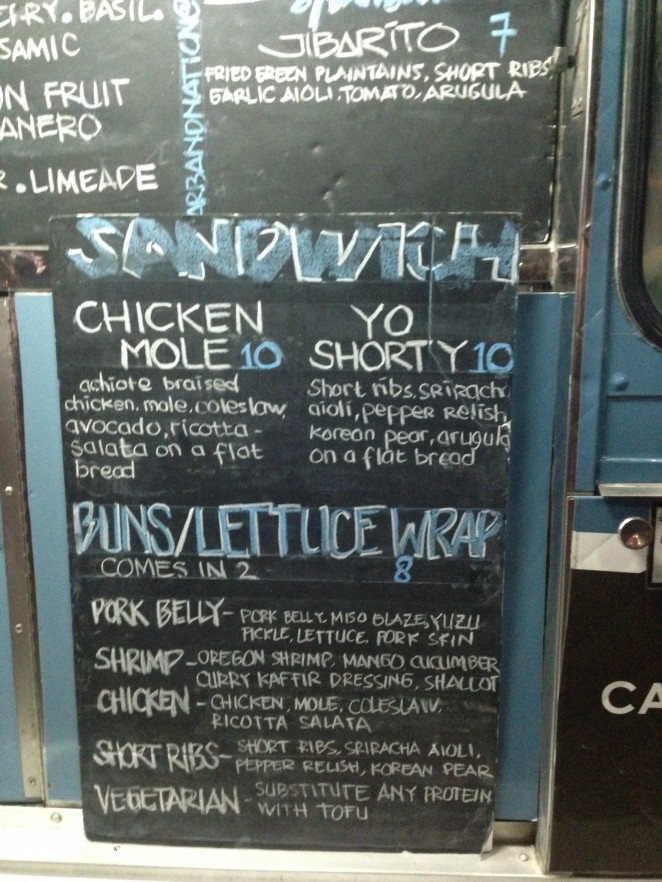 BASIL.
SAMIC
FRUIT
ANERO
. LIMEADE
ARBANDNATION@
JIBARITO 7
FRIED GREEN PLAINTAINS, SHORT RIBS
GARLIC AIOLI, TOMATO, ARUGULA
SANDWICH
CHICKEN
MOLE 10
achiote braised
chicken, mole, coleslaw,
avocado, ricotta-
salata on a flat
bread
YO
SHORTY 10
Short ribs, SRIRACH
aioli, pepper relish,
korean pear, arugula
on a flat bread
BUNS/LETTUCE WRAP
COMES IN 2 8
PORK BELLY- PORK BELLY, MISO GLAZE, YUZU
PICKLE, LETTUCE, PORK SKIN
SHRIMP-OREGON SHRIMP, MANGO CUCUMBER
CURRY KAFFIR DRESSING, SHALLOT
CHICKEN - CHICKEN, MOLE, COLESLAW,
RICOTTA SALATA
SHORT RIBS- SHORT RIBS, SRIRACHA AIOLI,
PEPPER RELISH, KOREAN PEAR
VEGETARIAN - SUBSTITUTE ANY PROTEIN
WITH TOFU
CA